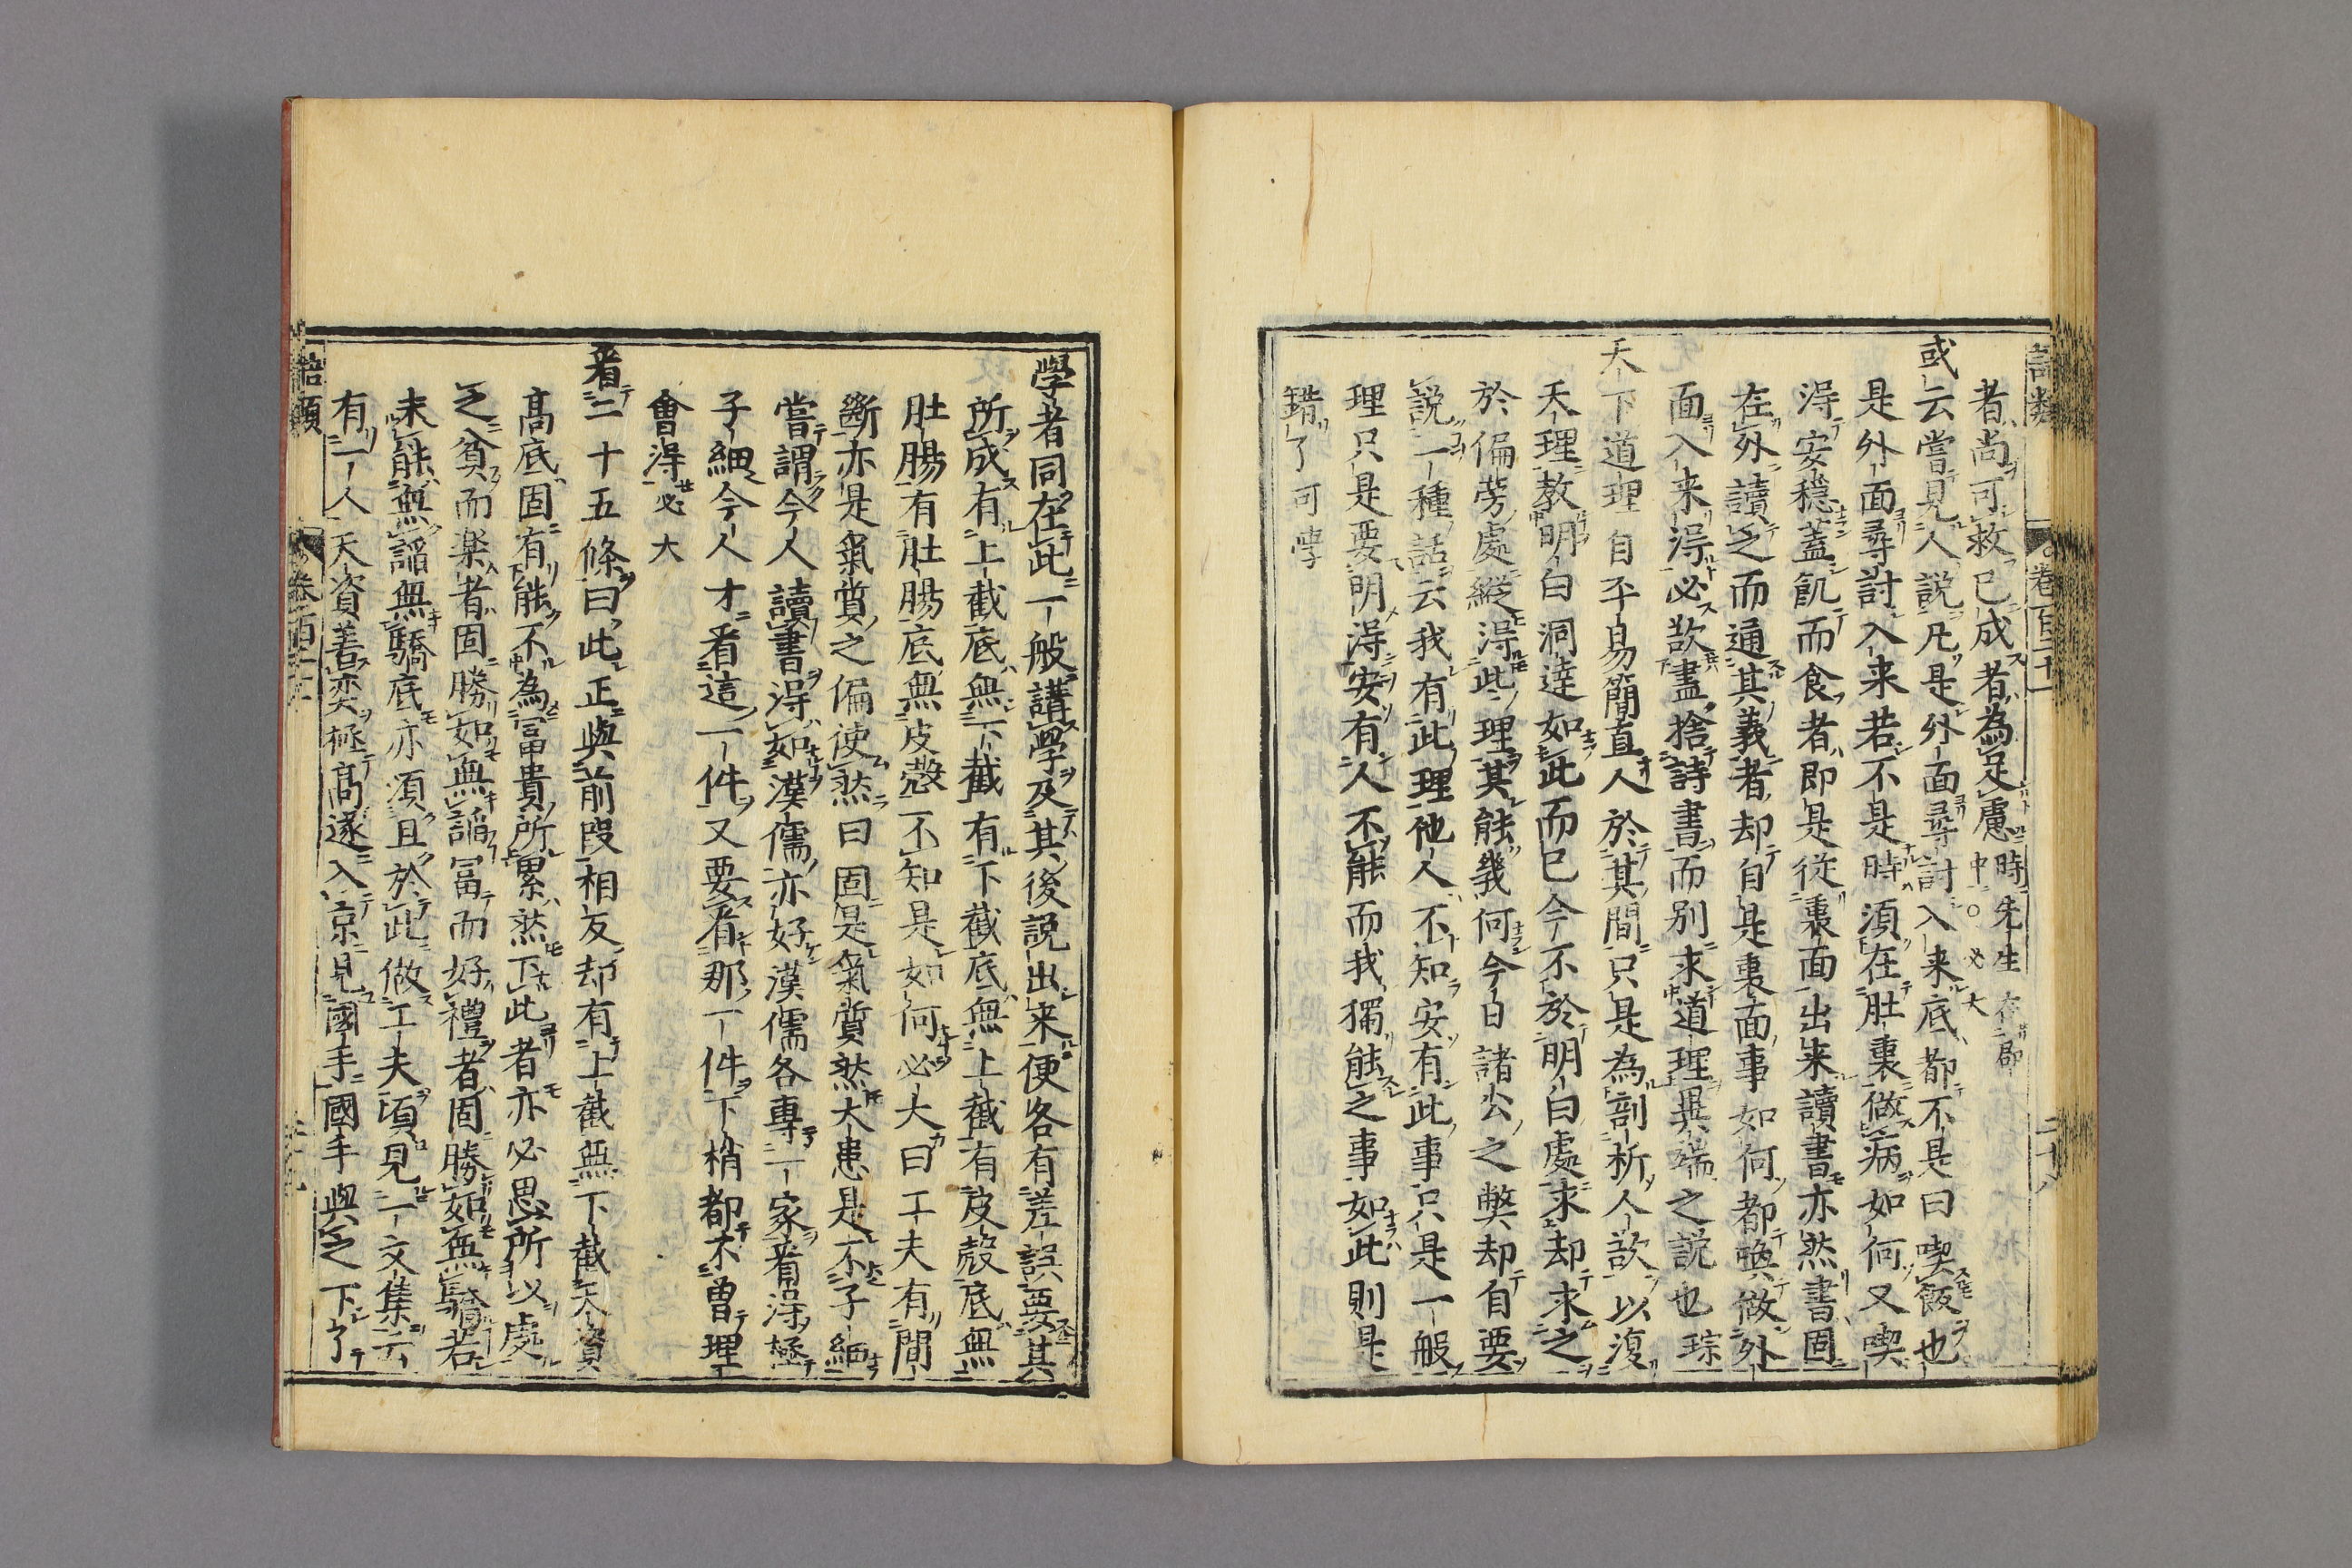 者尚可救已成者為足慮時先生在郡中○必大
或云嘗見人説凡是外面尋討入来底都不是曰喫飯也
是外面尋討入来若不是時須在肚裏做病如何又喫
淂安穏蓋飢而食者即是従裏面出来讀書亦然書固
在外讀之而通其義者却自是裏面事如何都喚做外
面入来淂必欲盡捨詩書而别求道理異端之説也琮
天下道理自平易簡直人於其間只是為剖析人欲以復
天理教明白洞達如此而已今不於明白處求却求之
於偏旁處縦淂此理其能幾何今日諸公之弊却自要
説一種話云我有此理他人不知安有此事只是一般
理只是要明淂安有人不能而我獨能之事如此則是
錯了可學
學者同在此一般講學及其後説出来便各有差誤要其
所成有上截底無下截有下截底無上截有皮殻底無
肚腸有肚腸底無皮殻不知是如何必大曰工夫有間
斷亦是氣質之偏使然曰固是氣質然大患是不子細
嘗謂今人讀書淂如漢儒亦好漢儒各專一家看淂極
子細今人才看這一件又要看那一件下梢都不曽理
會淂必大
看二十五條曰此正與前段相反却有上截無下截天資
髙底固有能不為冨貴所累然下此者亦必思所以處
之貧而楽者固勝如無謟冨而好禮者固勝如無驕若
未能無謟無驕底亦須且於此做工夫頃見一文集云
有一人天資善奕極髙遂入京見國手國手與之下了
語類
卷百二十